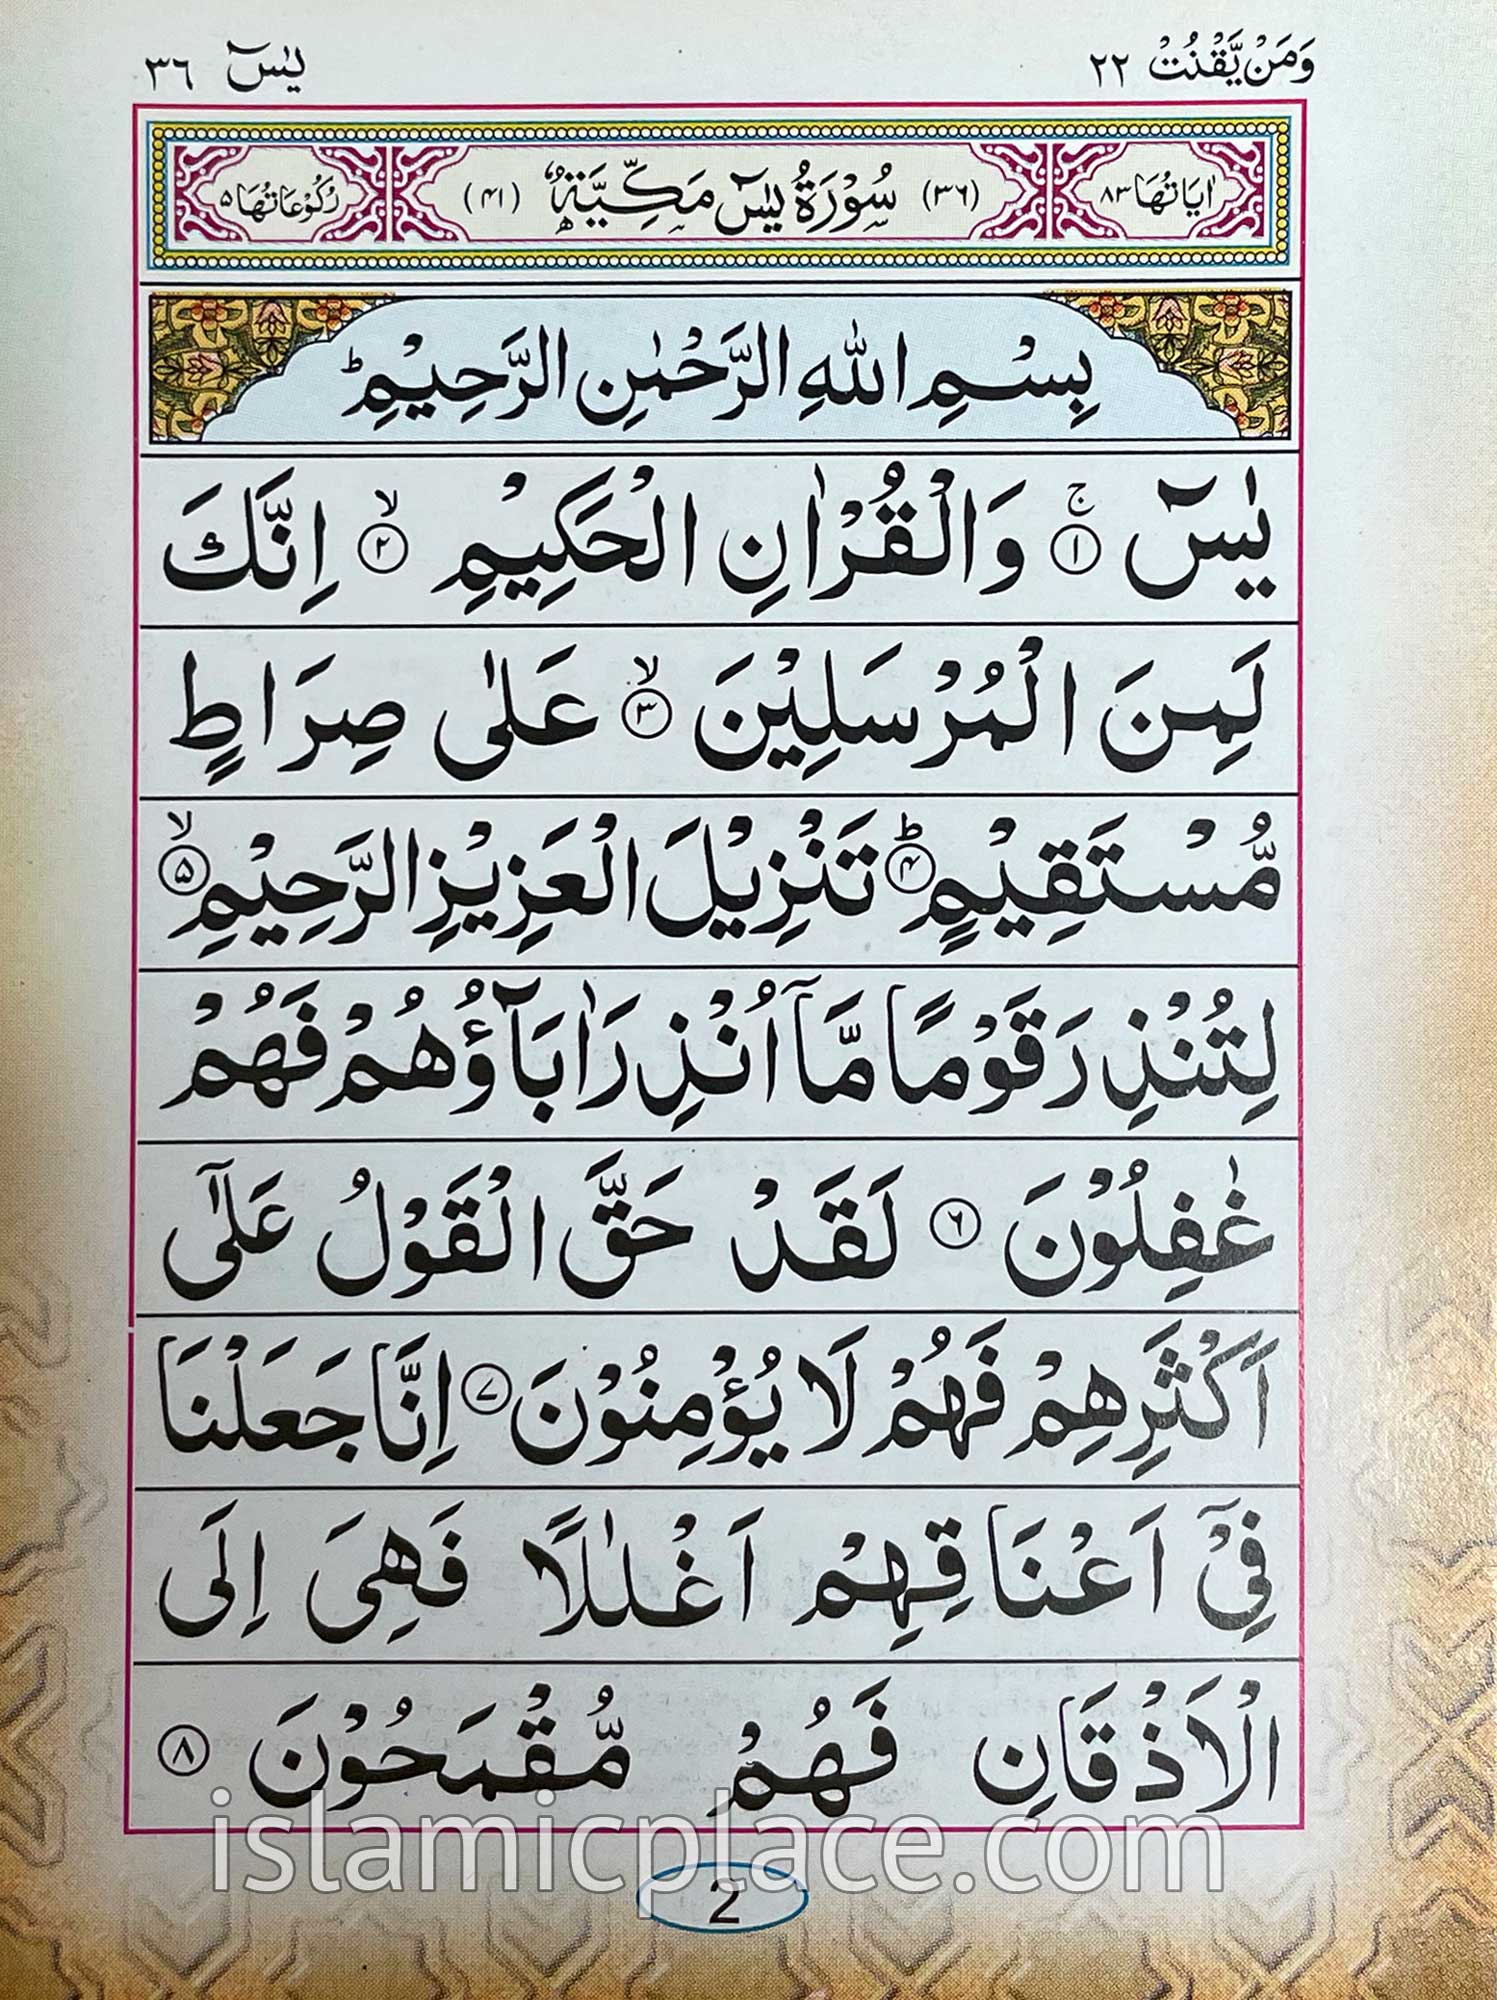 وَمَنْ يَّقْنُتْ ٢٢ يٰسٓ ٣٦
اٰيَاتُهَا ٨٣ (٣٦) سُوْرَةُ يٰسٓ مَكِّيَّةٌ (٤١) رُكُوْعَاتُهَا ٥
بِسْمِ اللّٰهِ الرَّحْمٰنِ الرَّحِيْمِ ؕ
يٰسٓ ۚ ﴿١﴾ وَالْقُرْاٰنِ الْحَكِيْمِ ۙ ﴿٢﴾ اِنَّكَ
لَمِنَ الْمُرْسَلِيْنَ ۙ ﴿٣﴾ عَلٰى صِرَاطٍ
مُّسْتَقِيْمٍ ؕ ﴿٤﴾ تَنْزِيْلَ الْعَزِيْزِ الرَّحِيْمِ ۙ ﴿٥﴾
لِتُنْذِرَ قَوْمًا مَّاۤ اُنْذِرَ اٰبَآؤُهُمْ فَهُمْ
غٰفِلُوْنَ ﴿٦﴾ لَقَدْ حَقَّ الْقَوْلُ عَلٰۤى
اَكْثَرِهِمْ فَهُمْ لَا يُؤْمِنُوْنَ ﴿٧﴾ اِنَّا جَعَلْنَا
فِيْۤ اَعْنَاقِهِمْ اَغْلٰلًا فَهِىَ اِلَى
الْاَذْقَانِ فَهُمْ مُّقْمَحُوْنَ ﴿٨﴾
islamicplace.com
2